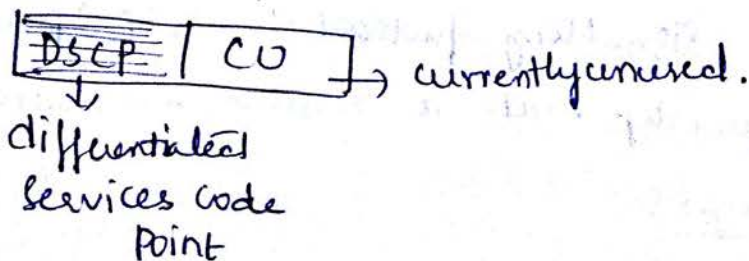 DSCP | CU → currently unused.
↓
differentiated
services code
point